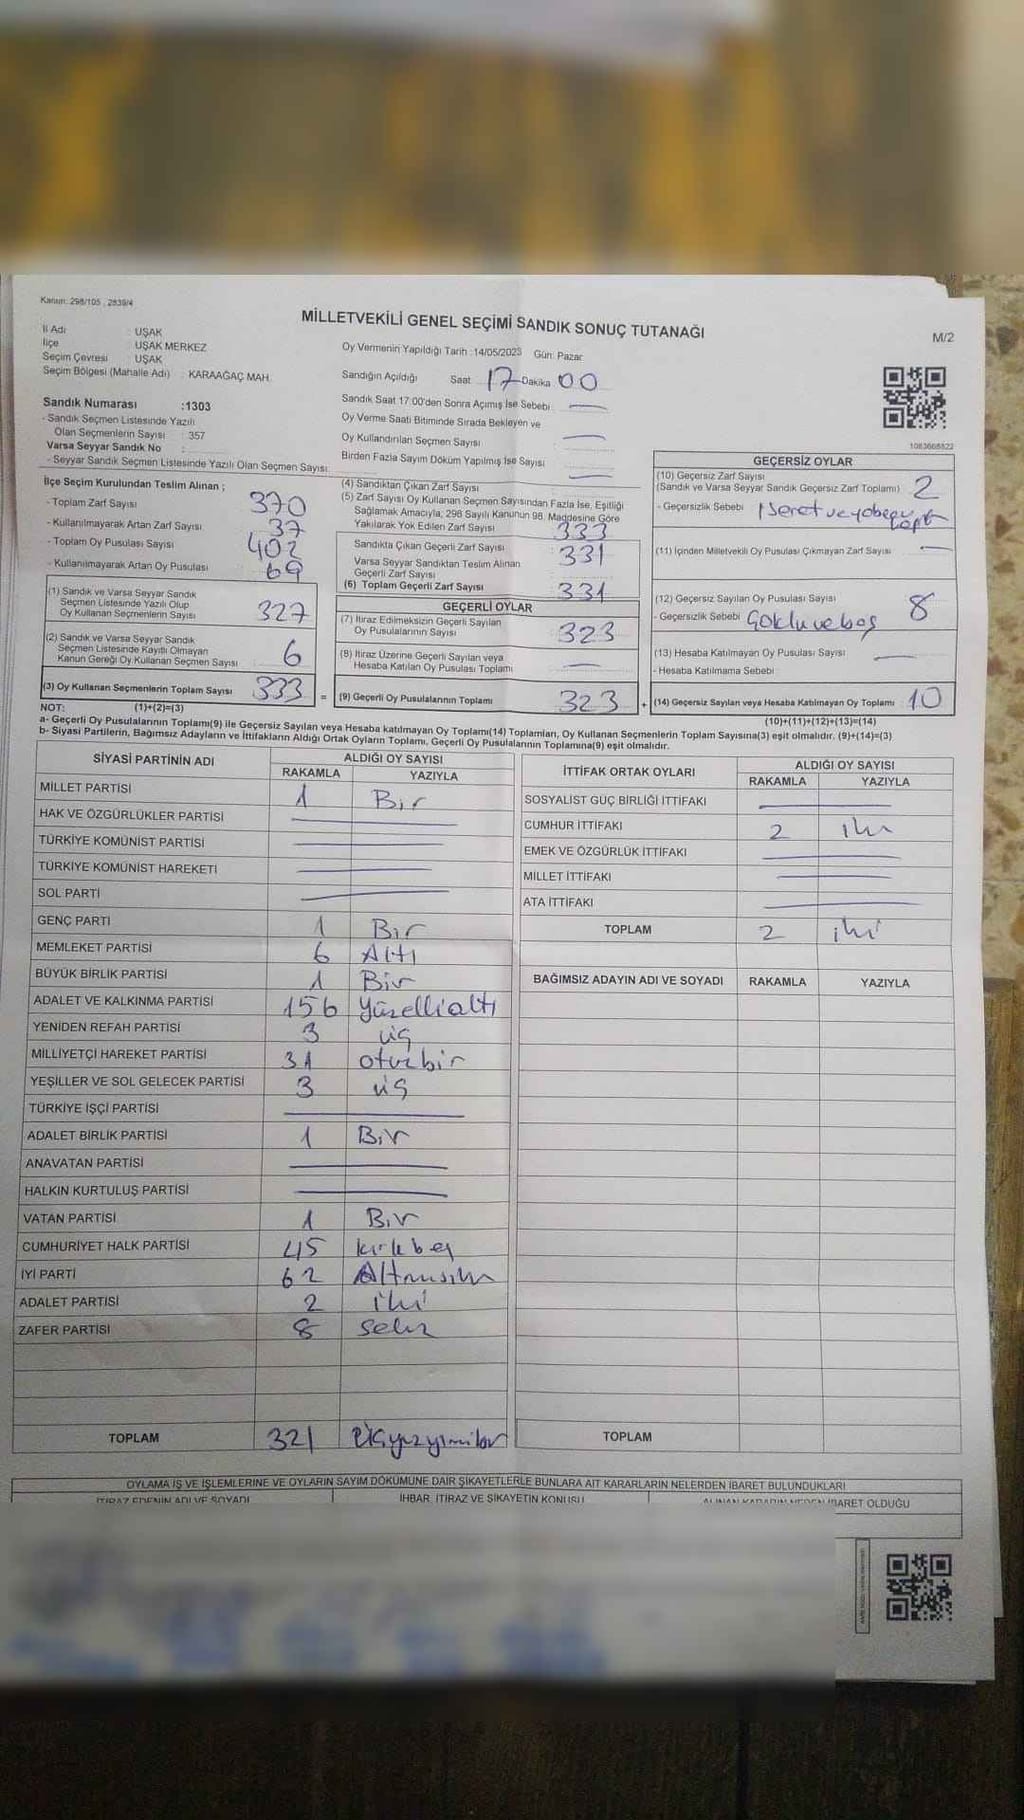 Kanun: 298/105 , 2839/4
MİLLETVEKİLİ GENEL SEÇİMİ SANDIK SONUÇ TUTANAĞI
M/2
İl Adı : UŞAK
İlçe : UŞAK MERKEZ
Seçim Çevresi : UŞAK
Seçim Bölgesi (Mahalle Adı) : KARAAĞAÇ MAH.
Oy Vermenin Yapıldığı Tarih :14/05/2023 Gün: Pazar
Sandığın Açıldığı Saat 17 Dakika 00
Sandık Saat 17:00'den Sonra Açımış İse Sebebi
Oy Verme Saati Bitiminde Sırada Bekleyen ve
Oy Kullandırılan Seçmen Sayısı
Birden Fazla Sayım Döküm Yapılmış İse Sayısı
Sandık Numarası :1303
- Sandık Seçmen Listesinde Yazılı
Olan Seçmenlerin Sayısı : 357
Varsa Seyyar Sandık No :
- Seyyar Sandık Seçmen Listesinde Yazılı Olan Seçmen Sayısı:
1083668822
İlçe Seçim Kurulundan Teslim Alınan ;
- Toplam Zarf Sayısı 370
- Kullanılmayarak Artan Zarf Sayısı 37
- Toplam Oy Pusulası Sayısı 402
- Kullanılmayarak Artan Oy Pusulası 69
(1) Sandık ve Varsa Seyyar Sandık
Seçmen Listesinde Yazılı Olup
Oy Kullanan Seçmenlerin Sayısı 327
(2) Sandık ve Varsa Seyyar Sandık
Seçmen Listesinde Kayıtlı Olmayan
Kanun Gereği Oy Kullanan Seçmen Sayısı 6
(3) Oy Kullanan Seçmenlerin Toplam Sayısı 333 =
(1)+(2)=(3)
(4) Sandıktan Çıkan Zarf Sayısı
(5) Zarf Sayısı Oy Kullanan Seçmen Sayısından Fazla İse, Eşitliği
Sağlamak Amacıyla; 298 Sayılı Kanunun 98. Maddesine Göre
Yakılarak Yok Edilen Zarf Sayısı 333
Sandıkta Çıkan Geçerli Zarf Sayısı 331
Varsa Seyyar Sandıktan Teslim Alınan
Geçerli Zarf Sayısı
(6) Toplam Geçerli Zarf Sayısı 331
GEÇERLİ OYLAR
(7) İtiraz Edilmeksizin Geçerli Sayılan
Oy Pusulalarının Sayısı 323
(8) İtiraz Üzerine Geçerli Sayılan veya
Hesaba Katılan Oy Pusulası Toplamı
(9) Geçerli Oy Pusulalarının Toplamı 323 +
GEÇERSİZ OYLAR
(10) Geçersiz Zarf Sayısı
(Sandık ve Varsa Seyyar Sandık Geçersiz Zarf Toplamı) 2
- Geçersizlik Sebebi
(11) İçinden Milletvekili Oy Pusulası Çıkmayan Zarf Sayısı
(12) Geçersiz Sayılan Oy Pusulası Sayısı 8
- Geçersizlik Sebebi Çoklu ve boş
(13) Hesaba Katılmayan Oy Pusulası Sayısı
- Hesaba Katılmama Sebebi
(14) Geçersiz Sayılan veya Hesaba Katılmayan Oy Toplamı : 10
(10)+(11)+(12)+(13)=(14)
NOT:
a- Geçerli Oy Pusulalarının Toplamı(9) ile Geçersiz Sayılan veya Hesaba katılmayan Oy Toplamı(14) Toplamları, Oy Kullanan Seçmenlerin Toplam Sayısına(3) eşit olmalıdır. (9)+(14)=(3)
b- Siyasi Partilerin, Bağımsız Adayların ve İttifakların Aldığı Ortak Oyların Toplamı, Geçerli Oy Pusulalarının Toplamına(9) eşit olmalıdır.
SİYASİ PARTİNİN ADI ALDIĞI OY SAYISI
RAKAMLA YAZIYLA
MİLLET PARTİSİ 1 Bir
HAK VE ÖZGÜRLÜKLER PARTİSİ
TÜRKİYE KOMÜNİST PARTİSİ
TÜRKİYE KOMÜNİST HAREKETİ
SOL PARTİ
GENÇ PARTİ 1 Bir
MEMLEKET PARTİSİ 6 Altı
BÜYÜK BİRLİK PARTİSİ 1 Bir
ADALET VE KALKINMA PARTİSİ 156 yüzellialtı
YENİDEN REFAH PARTİSİ 3 üç
MİLLİYETÇİ HAREKET PARTİSİ 31 otuzbir
YEŞİLLER VE SOL GELECEK PARTİSİ 3 üç
TÜRKİYE İŞÇİ PARTİSİ
ADALET BİRLİK PARTİSİ 1 Bir
ANAVATAN PARTİSİ
HALKIN KURTULUŞ PARTİSİ
VATAN PARTİSİ 1 Bir
CUMHURİYET HALK PARTİSİ 45 kırkbeş
İYİ PARTİ 62 Altmışiki
ADALET PARTİSİ 2 iki
ZAFER PARTİSİ 8 sekiz
TOPLAM 321 üçyüzyirmibir
İTTİFAK ORTAK OYLARI ALDIĞI OY SAYISI
RAKAMLA YAZIYLA
SOSYALİST GÜÇ BİRLİĞİ İTTİFAKI
CUMHUR İTTİFAKI 2 iki
EMEK VE ÖZGÜRLÜK İTTİFAKI
MİLLET İTTİFAKI
ATA İTTİFAKI
TOPLAM 2 iki
BAĞIMSIZ ADAYIN ADI VE SOYADI RAKAMLA YAZIYLA
TOPLAM
OYLAMA İŞ VE İŞLEMLERİNE VE OYLARIN SAYIM DÖKÜMÜNE DAİR ŞİKAYETLERLE BUNLARA AİT KARARLARIN NELERDEN İBARET BULUNDUKLARI
İTİRAZ EDENİN ADI VE SOYADI İHBAR, İTİRAZ VE ŞİKAYETİN KONUSU ALINAN KARARIN NEDEN İBARET OLDUĞU